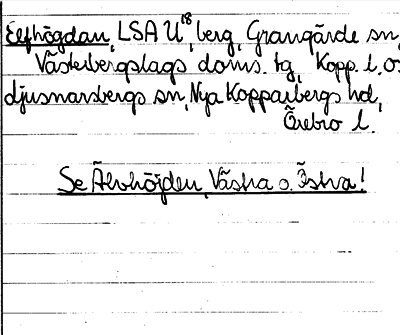 Elfhögdan, LSA U 18, berg, Grangärde sn,
Västerbergslags doms. tg, Kopp. l, o.
djusnarsbergs sn, Nya Kopparbergs hd,
Örebro l.
Se Älvhöjden, Västra o. Östra!